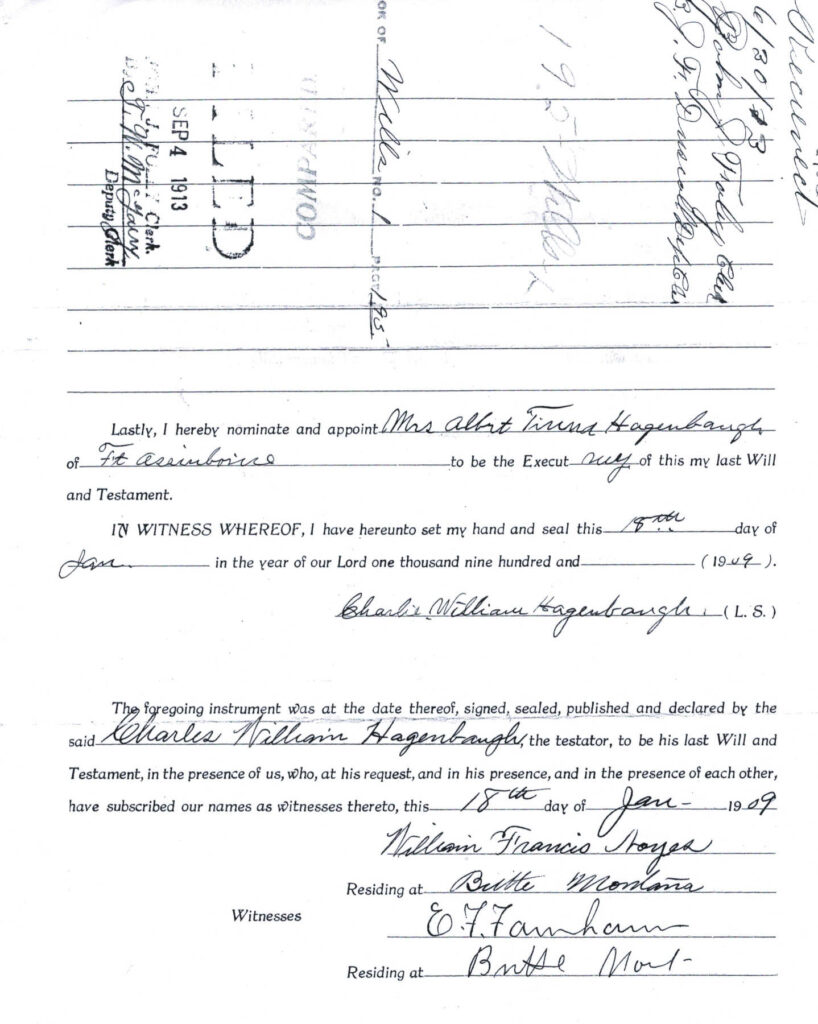 Received
6/30/13
John J Foley Clerk
By J. F. Driscoll Dep Clk
195 Wills 1
OK OF Wills NO. 1 PAGE 195
COMPARED
FILED
SEP 4 1913
Clerk.
By J. W. McGarry
Deputy Clerk
Lastly, I hereby nominate and appoint Mrs Albert Hagenbaugh
of Ft Assinboine to be the Execut of this my last Will
and Testament.
IN WITNESS WHEREOF, I have hereunto set my hand and seal this 18th day of
Jan. in the year of our Lord one thousand nine hundred and (1909).
Charlie William Hagenbaugh. (L. S.)
The foregoing instrument was at the date thereof, signed, sealed, published and declared by the
said Charles William Hagenbaugh, the testator, to be his last Will and
Testament, in the presence of us, who, at his request, and in his presence, and in the presence of each other,
have subscribed our names as witnesses thereto, this 18th day of Jan- 1909
William Francis Noyes
Residing at Butte Montana
Witnesses E. F. Farnham
Residing at Butte Mont-